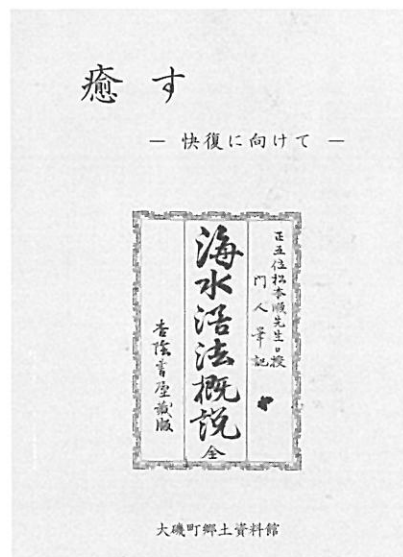 癒す
― 快復に向けて ―
正五位松本順先生口授
門人筆記
海水浴法概説 全
杏陰書屋蔵版
大磯町郷土資料館